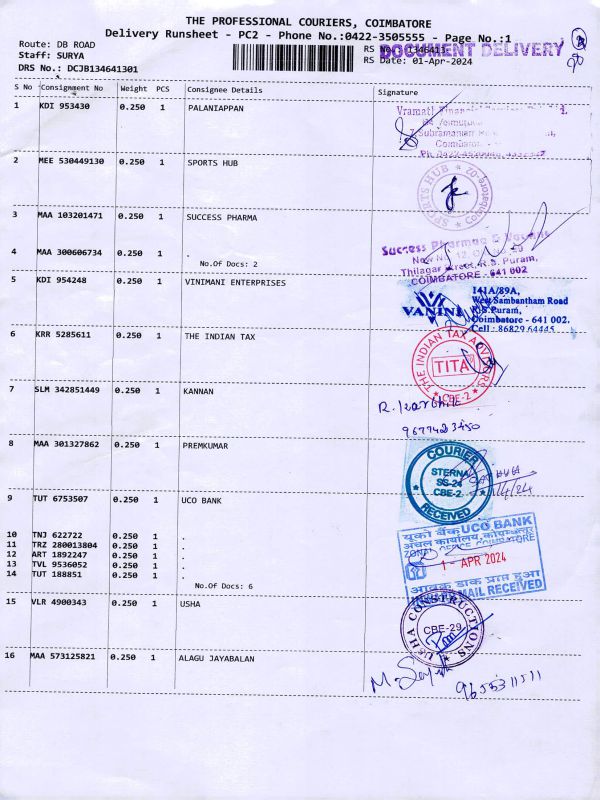 THE PROFESSIONAL COURIERS, COIMBATORE
Delivery Runsheet - PC2 - Phone No.:0422-3505555 - Page No.:1
Route: DB ROAD
Staff: SURYA
DRS No.: DCJB134641301
RS No.: 1346413
DOCUMENT DELIVERY
RS Date: 01-Apr-2024
S No Consignment No Weight PCS Consignee Details Signature
1 KDI 953430 0.250 1 PALANIAPPAN
2 MEE 530449130 0.250 1 SPORTS HUB
SPORTS HUB
3 MAA 103201471 0.250 1 SUCCESS PHARMA
Success Pharma
Thilagar Street, R.S. Puram,
COIMBATORE - 641 002
4 MAA 300606734 0.250 1 .
No.Of Docs: 2
5 KDI 954248 0.250 1 VINIMANI ENTERPRISES
VANINI
141A/89A,
West Sambantham Road
R.S.Puram,
Coimbatore - 641 002.
Cell : 86829 64445
6 KRR 5285611 0.250 1 THE INDIAN TAX
THE INDIAN TAX ADVISORS
TITA
CBE-2
7 SLM 342851449 0.250 1 KANNAN
9677423450
8 MAA 301327862 0.250 1 PREMKUMAR
COURIER
STERNA
SS-24
CBE-2
RECEIVED
9 TUT 6753507 0.250 1 UCO BANK
यूको बैंक UCO BANK
अंचल कार्यालय, कोयम्बत्तूर
ZONAL OFFICE COIMBATORE
1 - APR 2024
आवक डाक प्राप्त हुआ
MAIL RECEIVED
10 TNJ 622722 0.250 1 .
11 TRZ 280013804 0.250 1 .
12 ART 1892247 0.250 1 .
13 TVL 9536052 0.250 1 .
14 TUT 188851 0.250 1 .
No.Of Docs: 6
15 VLR 4900343 0.250 1 USHA
USHA CONSTRUCTIONS
CBE-29
16 MAA 573125821 0.250 1 ALAGU JAYABALAN
9655311511